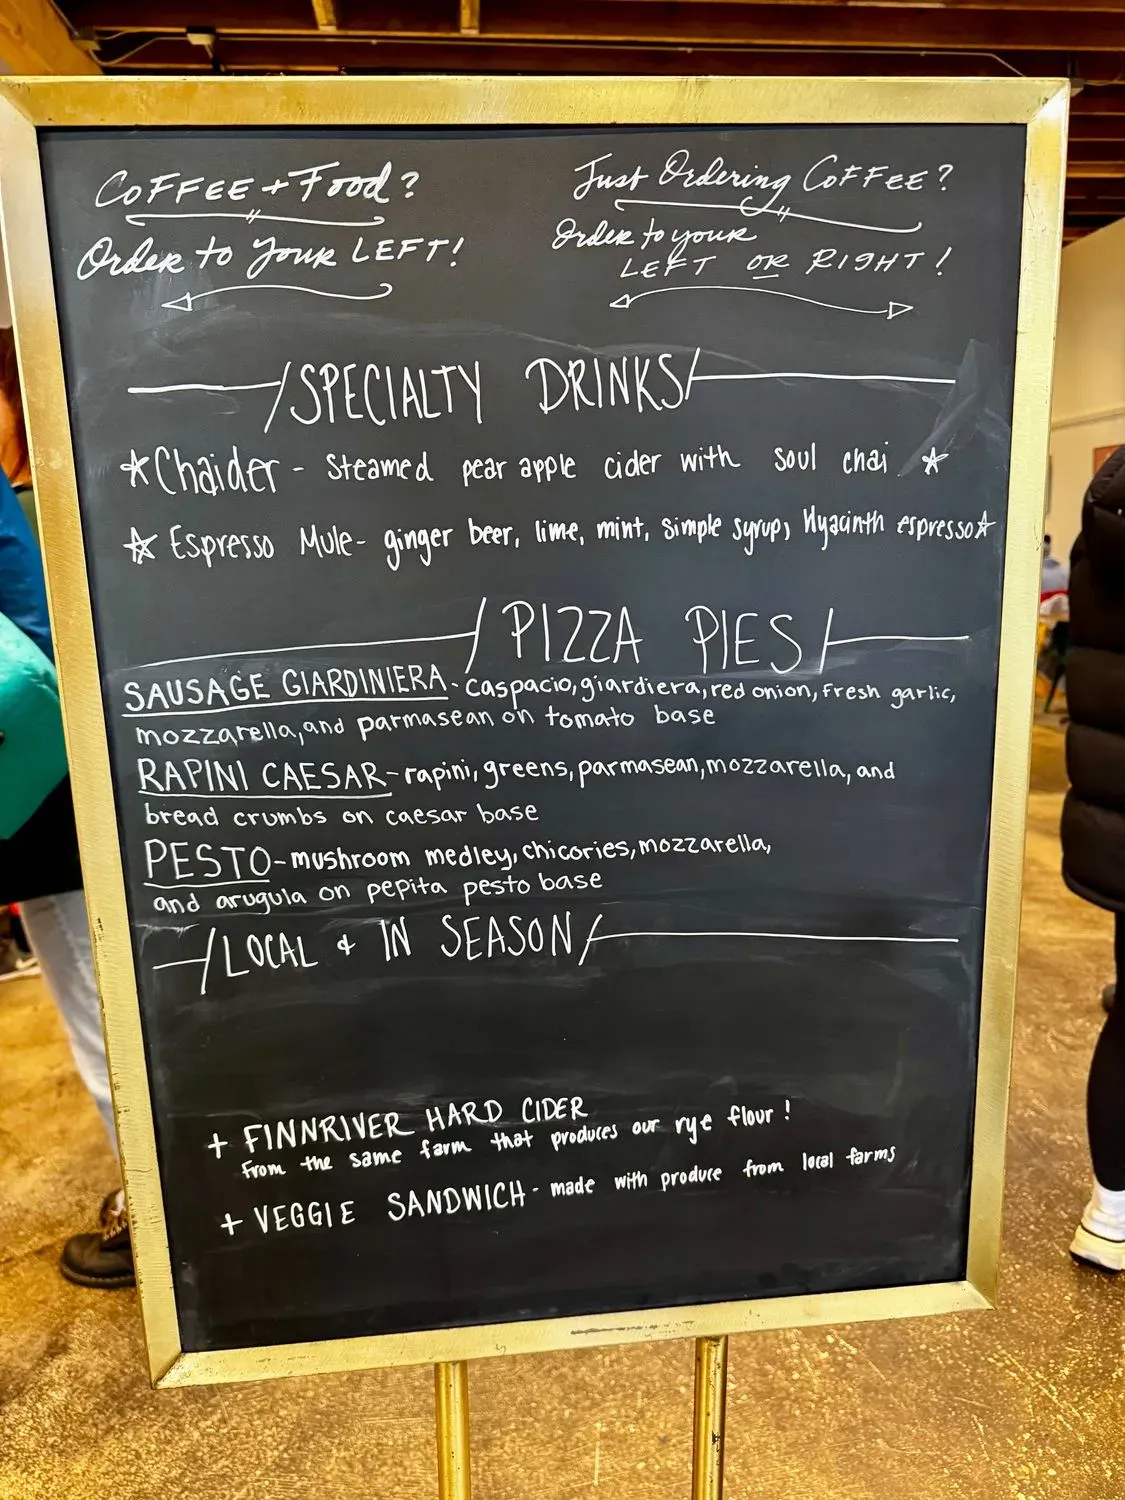 Coffee + Food?
Order to Your LEFT!
Just Ordering Coffee?
Order to your
LEFT OR RIGHT!
SPECIALTY DRINKS
Chaider - Steamed pear apple cider with soul chai
Espresso Mule- ginger beer, lime, mint, simple syrup, Hyacinth espresso
PIZZA PIES
SAUSAGE GIARDINIERA- caspacio, giardiera, red onion, fresh garlic,
mozzarella, and parmasean on tomato base
RAPINI CAESAR- rapini, greens, parmasean, mozzarella, and
bread crumbs on caesar base
PESTO- mushroom medley, chicories, mozzarella,
and arugula on pepita pesto base
LOCAL & IN SEASON
+ FINNRIVER HARD CIDER
from the same farm that produces our rye flour!
+ VEGGIE SANDWICH - made with produce from local farms